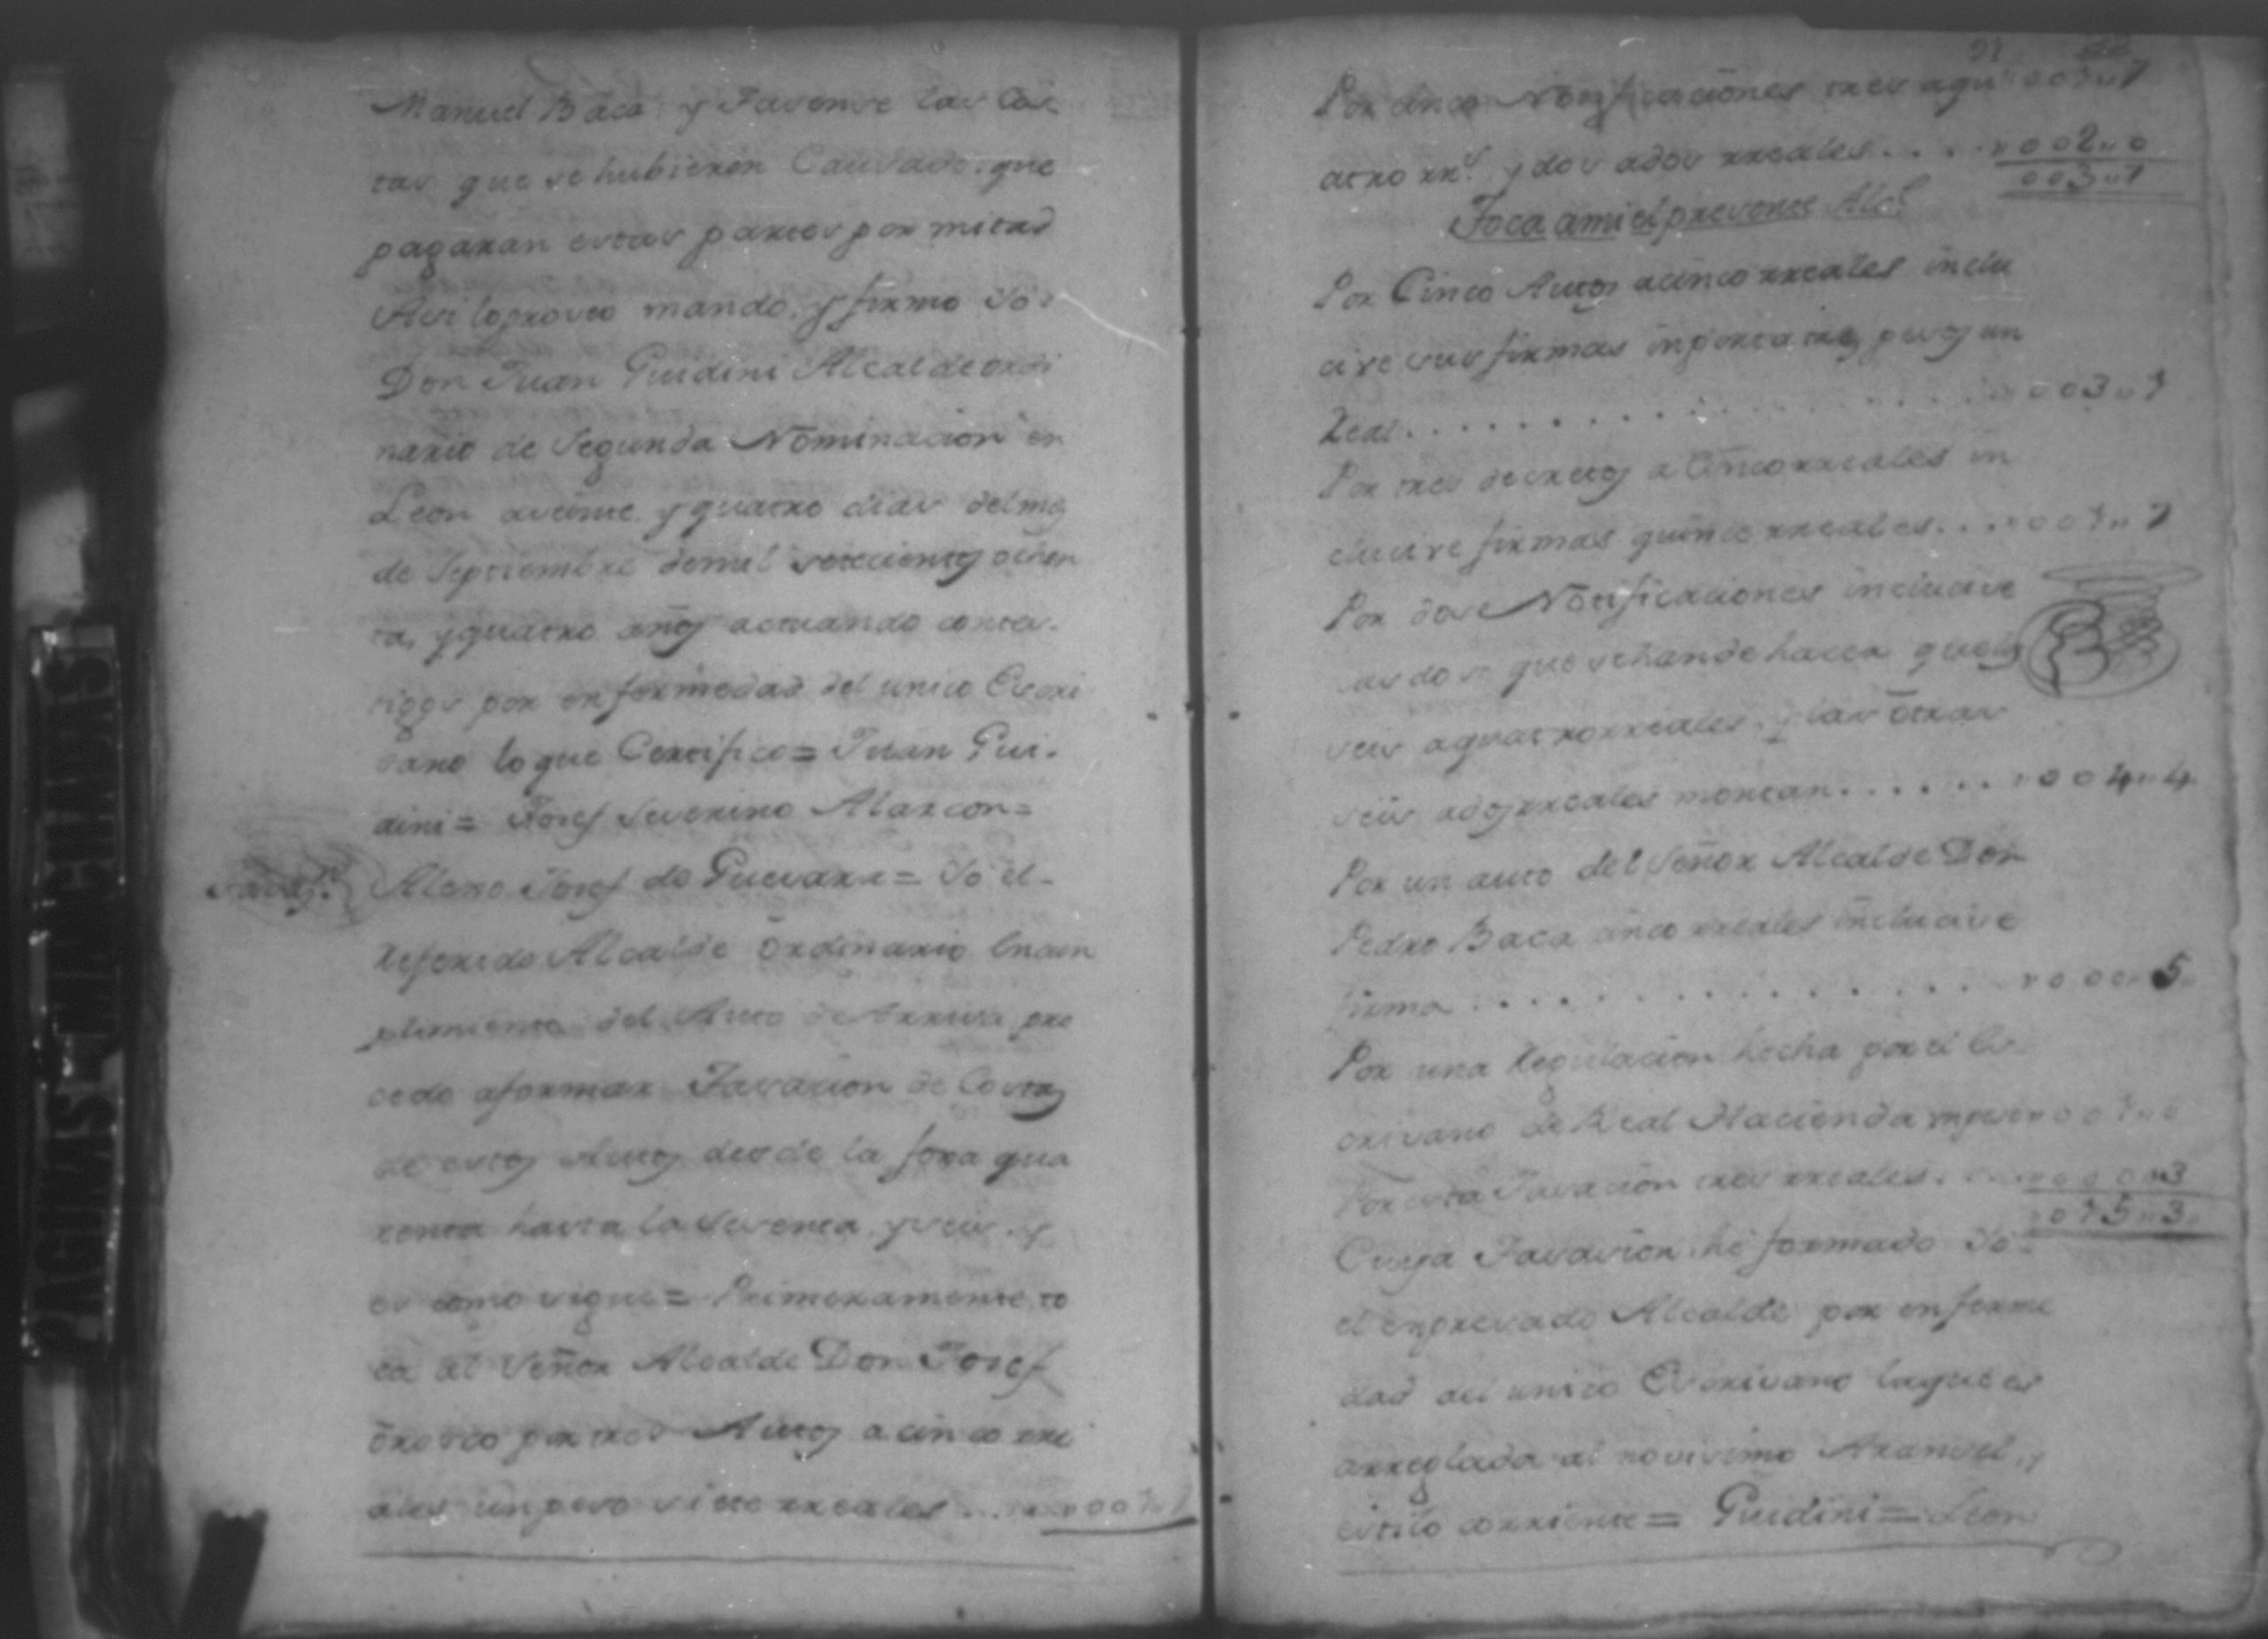 Manuel Baca y Tasense las Cos
tas que se hubieren Causado, que
pagaran estas partes por mitad
Asi lo proveo mando, y firmo Yo
Don Juan Guidini Alcalde ordi
nario de Segunda Nominacion en
Leon aveinte y quatro dias del mes
de Septiembre demil setecientos ochen
ta, y quatro años actuando contes-
tigos por enfermedad del unico Escri
vano lo que Certifico = Juan Gui-
dini = Josef Severino Alarcon =
Alexo Josef de Guevara = Yo el
Referido Alcalde Ordinario En cum
plimiento del Auto de Arriva pro
cedo aformar Tasacion de Costas
de estos Autos desde la foxa qua
renta hasta la sesenta, y seis y
es como sigue = Primeramente to
ca al Señor Alcalde Don Josef
Orosco por tres Autos a cinco rre
ales un peso siete rreales
Por cinco Notificaciones tres aqu
atro rrs. y dos ados rreales.... 002,,0
003,,7
Toca ami el presente Alc.e
Por Cinco Autos acinco rreales inclu
cive sus firmas inporta tres pesos un
Real.................. 003,,1
Por tres decretos a Cinco rreales in
clucive firmas quince rreales... 001,,7
Por dose Notificaciones inclucive
las dos que se han de hacer que las
seis aquatro rreales, y las otras
seis ados rreales montan...... 004,,4
Por un auto del Señor Alcalde Don
Pedro Baca cinco rreales inclucive
firma................ 000,,5
Por una Regulacion hecha por el Es
crivano de Real Hacienda un peso 001,,0
Por esta Tasacion tres rreales.... 000,,3
015,,3
Cuya Tasacion he formado Yo
el expresado Alcalde por enferme
dad del unico Escrivano laque es
arreglada al novisimo Aransel, y
estilo corriente = Guidini = Leon